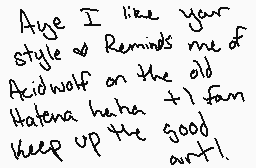 Aye I like your
style ♥ Reminds me of
Acidwolf on the old
Hatena haha +1 fan
Keep up the good
art!